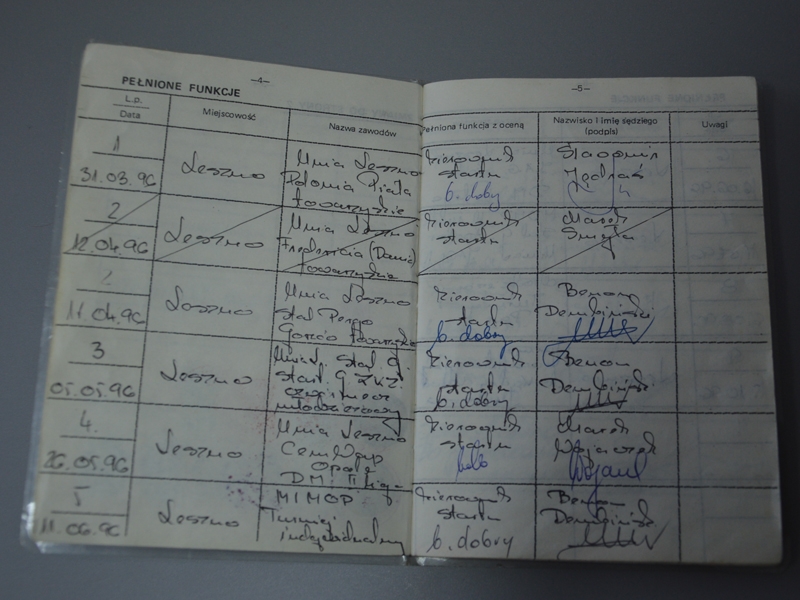 —4—
PEŁNIONE FUNKCJE
L.p.
Data
Miejscowość
Nazwa zawodów
1
31.03.96
Leszno
Unia Leszno
Polonia Piła
towarzyskie
2
12.04.96
Leszno
Unia Leszno
Fredericia (Dania)
towarzyskie
2
11.04.96
Leszno
Unia Leszno
Stal Pergo
Gorzów towarzyskie
3
05.05.96
Leszno
Stal G.
Start G
młodzieżowy
4.
26.05.96
Leszno
Unia Leszno
Opole
DM II liga
5
11.06.96
Leszno
MIMOP
Turniej
indywidualny
—5—
Pełniona funkcja z oceną
Nazwisko i imię sędziego
(podpis)
Uwagi
Kierownik
startu
b. dobry
Sławomir
Kierownik
startu
Marek
Smyła
Kierownik
startu
b. dobry
Benon
Dembiński
Kierownik
startu
b. dobry
Benon
Dembiński
Kierownik
startu
Marek
Wojaczek
Kierownik
startu
b. dobry
Benon
Dembiński